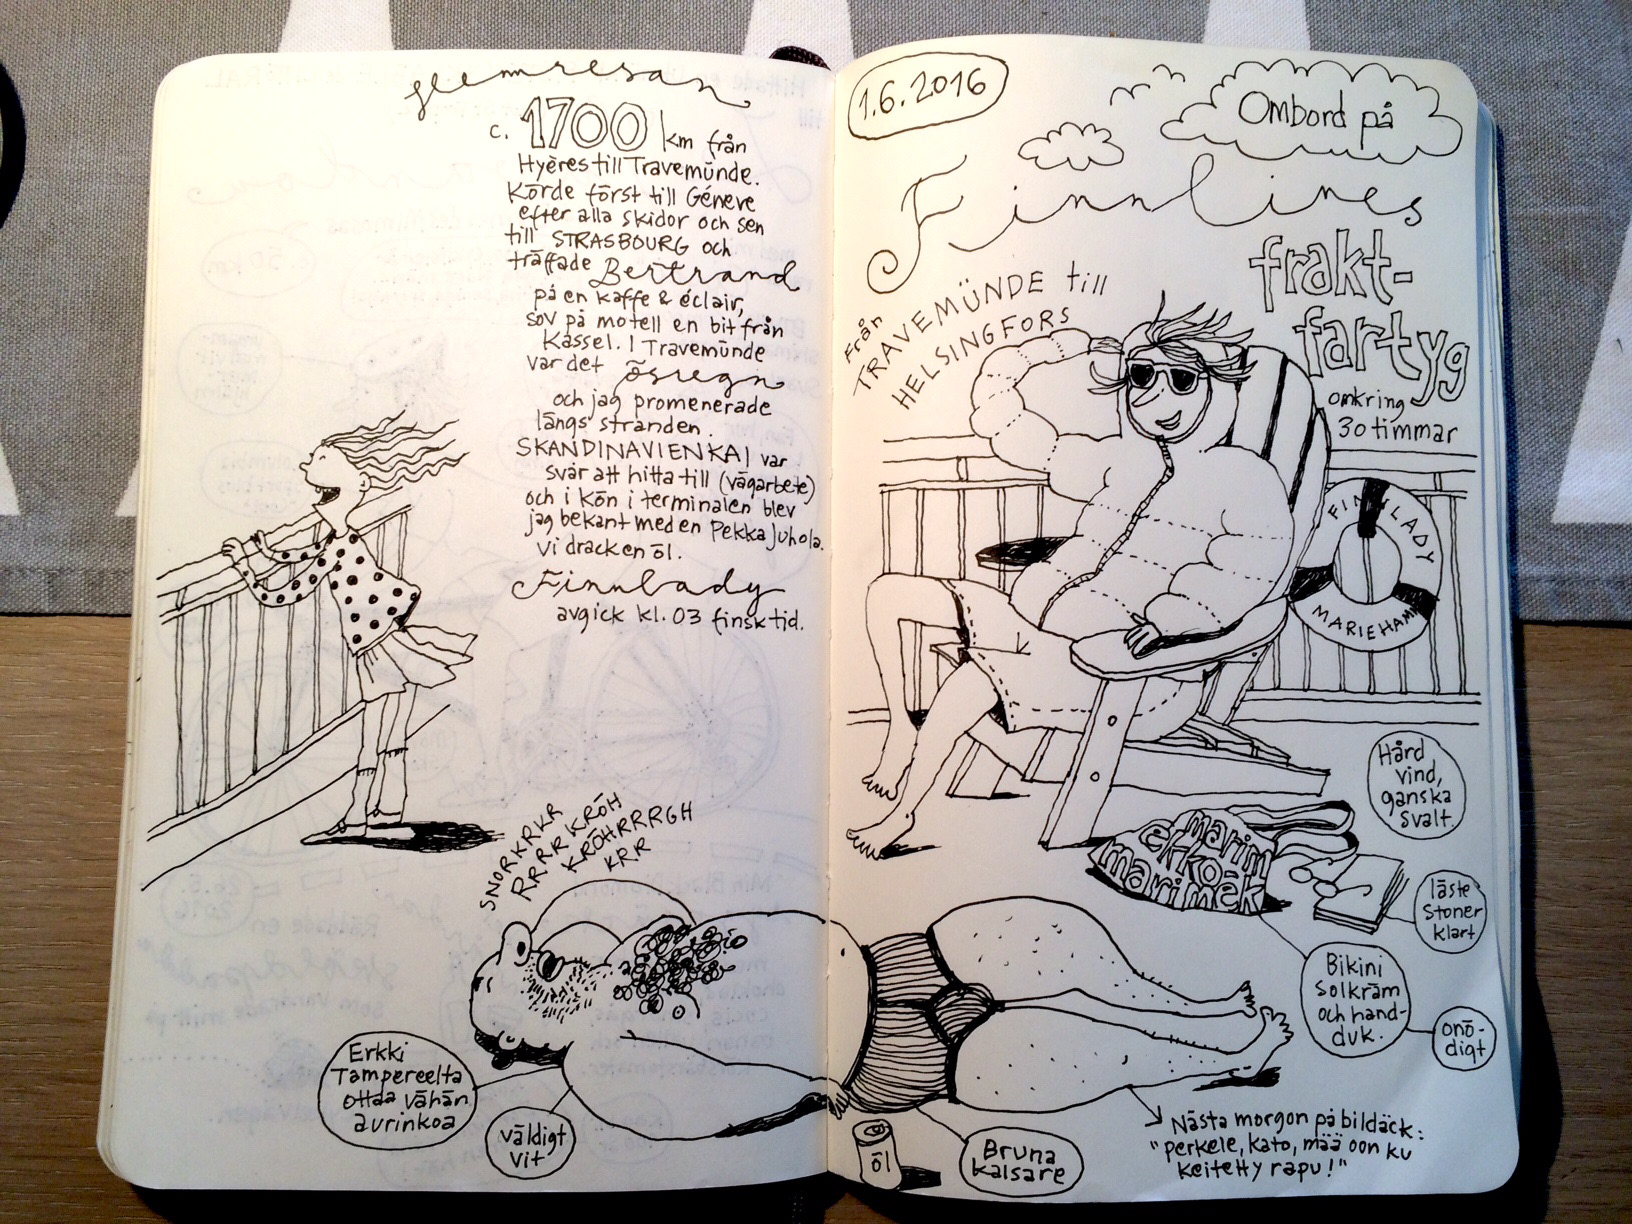 Hemresan
c. 1700 km från
Hyères till Travemünde.
Körde först till Genéve
efter alla skidor och sen
till STRASBOURG och
träffade Bertrand
på en kaffe & éclair,
sov på motell en bit från
Kassel. I Travemünde
var det ösregn
och jag promenerade
längs stranden.
SKANDINAVIENKAI var
svår att hitta till (vägarbete)
och i kön i terminalen blev
jag bekant med en Pekka Juhola.
Vi drack en öl.
Finnlady
avgick kl. 03 finsk tid.
SNORKRKR
RRRR KRÖH
KRÖHRRRGH
KRR
Erkki
Tampereelta
ottaa vähän
aurinkoa
väldigt
vit
1.6.2016
Ombord på
Finnlines
frakt-
fartyg
Från
TRAVEMÜNDE till
HELSINGFORS
omkring
30 timmar
FINNLADY
MARIEHAMN
Hård
vind,
ganska
svalt.
marim
ekkoäk
marimek
läste
Stoner
klart
Bikini
solkräm
och hand-
duk.
onö-
digt
öl
Bruna
kalsare
Nästa morgon på bildäck:
"perkele, kato, mää oon ku
keitetty rapu!"